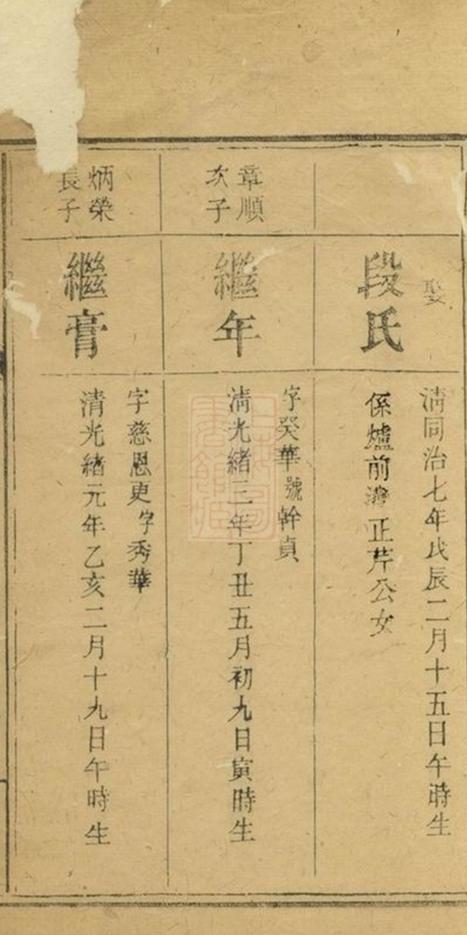 娶
段氏
清同治七年戊辰二月十五日午時生
係爐前灣正芹公女
章順
次子
繼年
字癸華號幹貞
清光緒三年丁丑五月初九日寅時生
炳榮
長子
繼膏
字慈恩更字秀華
清光緒元年乙亥二月十九日午時生